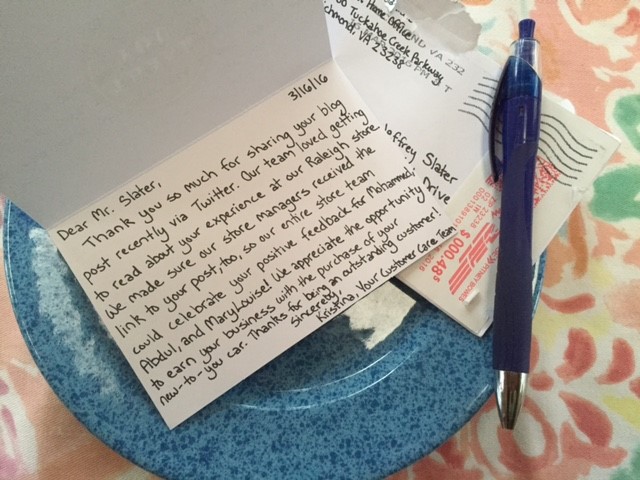 3/16/16
Dear Mr. Slater,
Thank you so much for sharing your blog
post recently via Twitter. Our team loved getting
to read about your experience at our Raleigh store.
We made sure our store managers received the
link to your post, too, so our entire store team
could celebrate your positive feedback for Mohammed,
Abdul, and MaryLouise! We appreciate the opportunity
to earn your business with the purchase of your
new-to-you car. Thanks for being an outstanding customer!
Sincerely,
Kristina, Your Customer Care Team
Home Office
Tuckahoe Creek Parkway
Richmond, VA 23238
ND VA 232
PM T
Slater
Drive
$ 000.48⁵
PITNEY BOWES